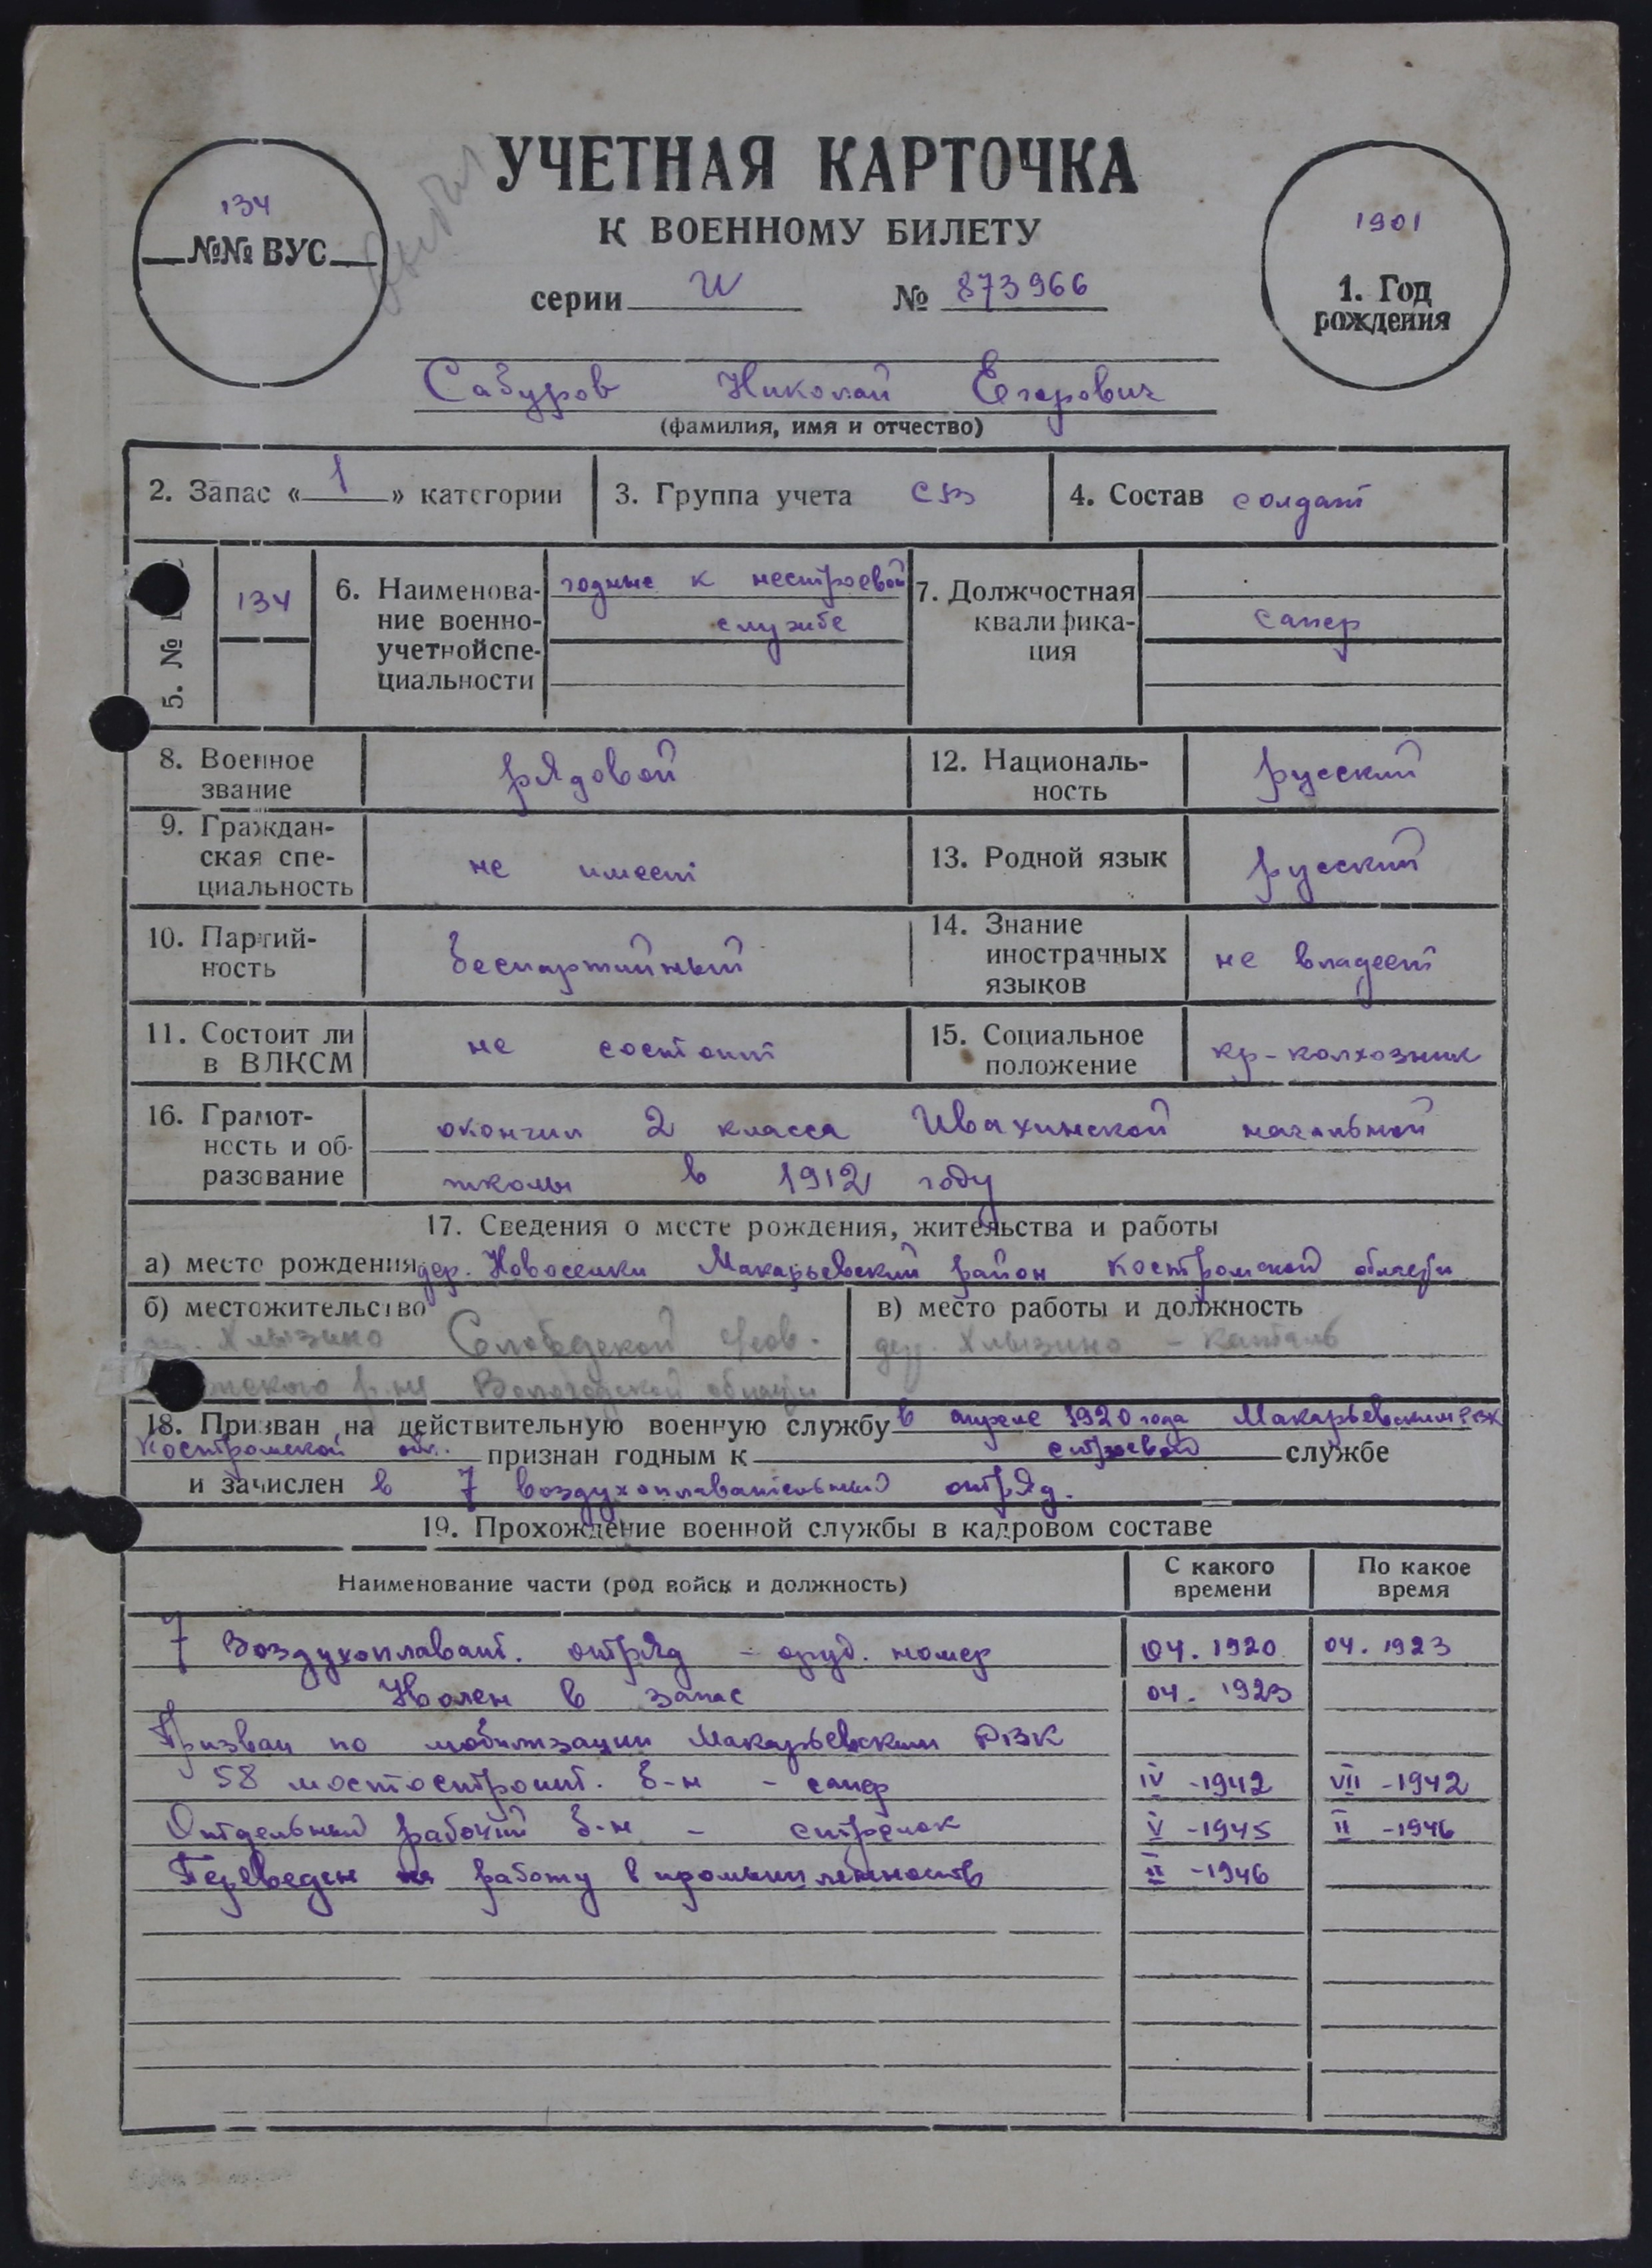 УЧЕТНАЯ КАРТОЧКА
К ВОЕННОМУ БИЛЕТУ
134
№№ ВУС
выбыл
серии И № 873966
1901
1. Год
рождения
Сабуров Николай Егорович
(фамилия, имя и отчество)
2. Запас « 1 » категории
3. Группа учета СВ
4. Состав солдат
5. №
134
6. Наименова-
ние военно-
учетной спе-
циальности
годные к нестроевой
службе
7. Должностная
квалифика-
ция
сапер
8. Военное
звание
рядовой
12. Националь-
ность
русский
9. Граждан-
ская спе-
циальность
не имеет
13. Родной язык
русский
10. Партий-
ность
беспартийный
14. Знание
иностранных
языков
не владеет
11. Состоит ли
в ВЛКСМ
не состоит
15. Социальное
положение
кр-колхозник
16. Грамот-
ность и об-
разование
окончил 2 класса Ивахинской начальной
школы в 1912 году
17. Сведения о месте рождения, жительства и работы
а) место рождения дер. Новоселки Макарьевский район Костромской области
б) местожительство
Хлызино Слободской
р-на Вологодской области
в) место работы и должность
дер. Хлызино –
18. Призван на действительную военную службу в апреле 1920 года Макарьевским РВК
Костромской обл. признан годным к строевой службе
и зачислен в 7 воздухоплавательный отряд.
19. Прохождение военной службы в кадровом составе
Наименование части (род войск и должность)
С какого
времени
По какое
время
7 Воздухоплават. отряд – оруд. номер 04. 1920 04. 1923
Уволен в запас 04. 1923
Призван по мобилизации Макарьевским РВК
58 мостостроит. б-н – сапер IV -1942 VII -1942
Отдельный рабочий б-н – стрелок V -1945 II -1946
Переведен на работу в промышленность II -1946